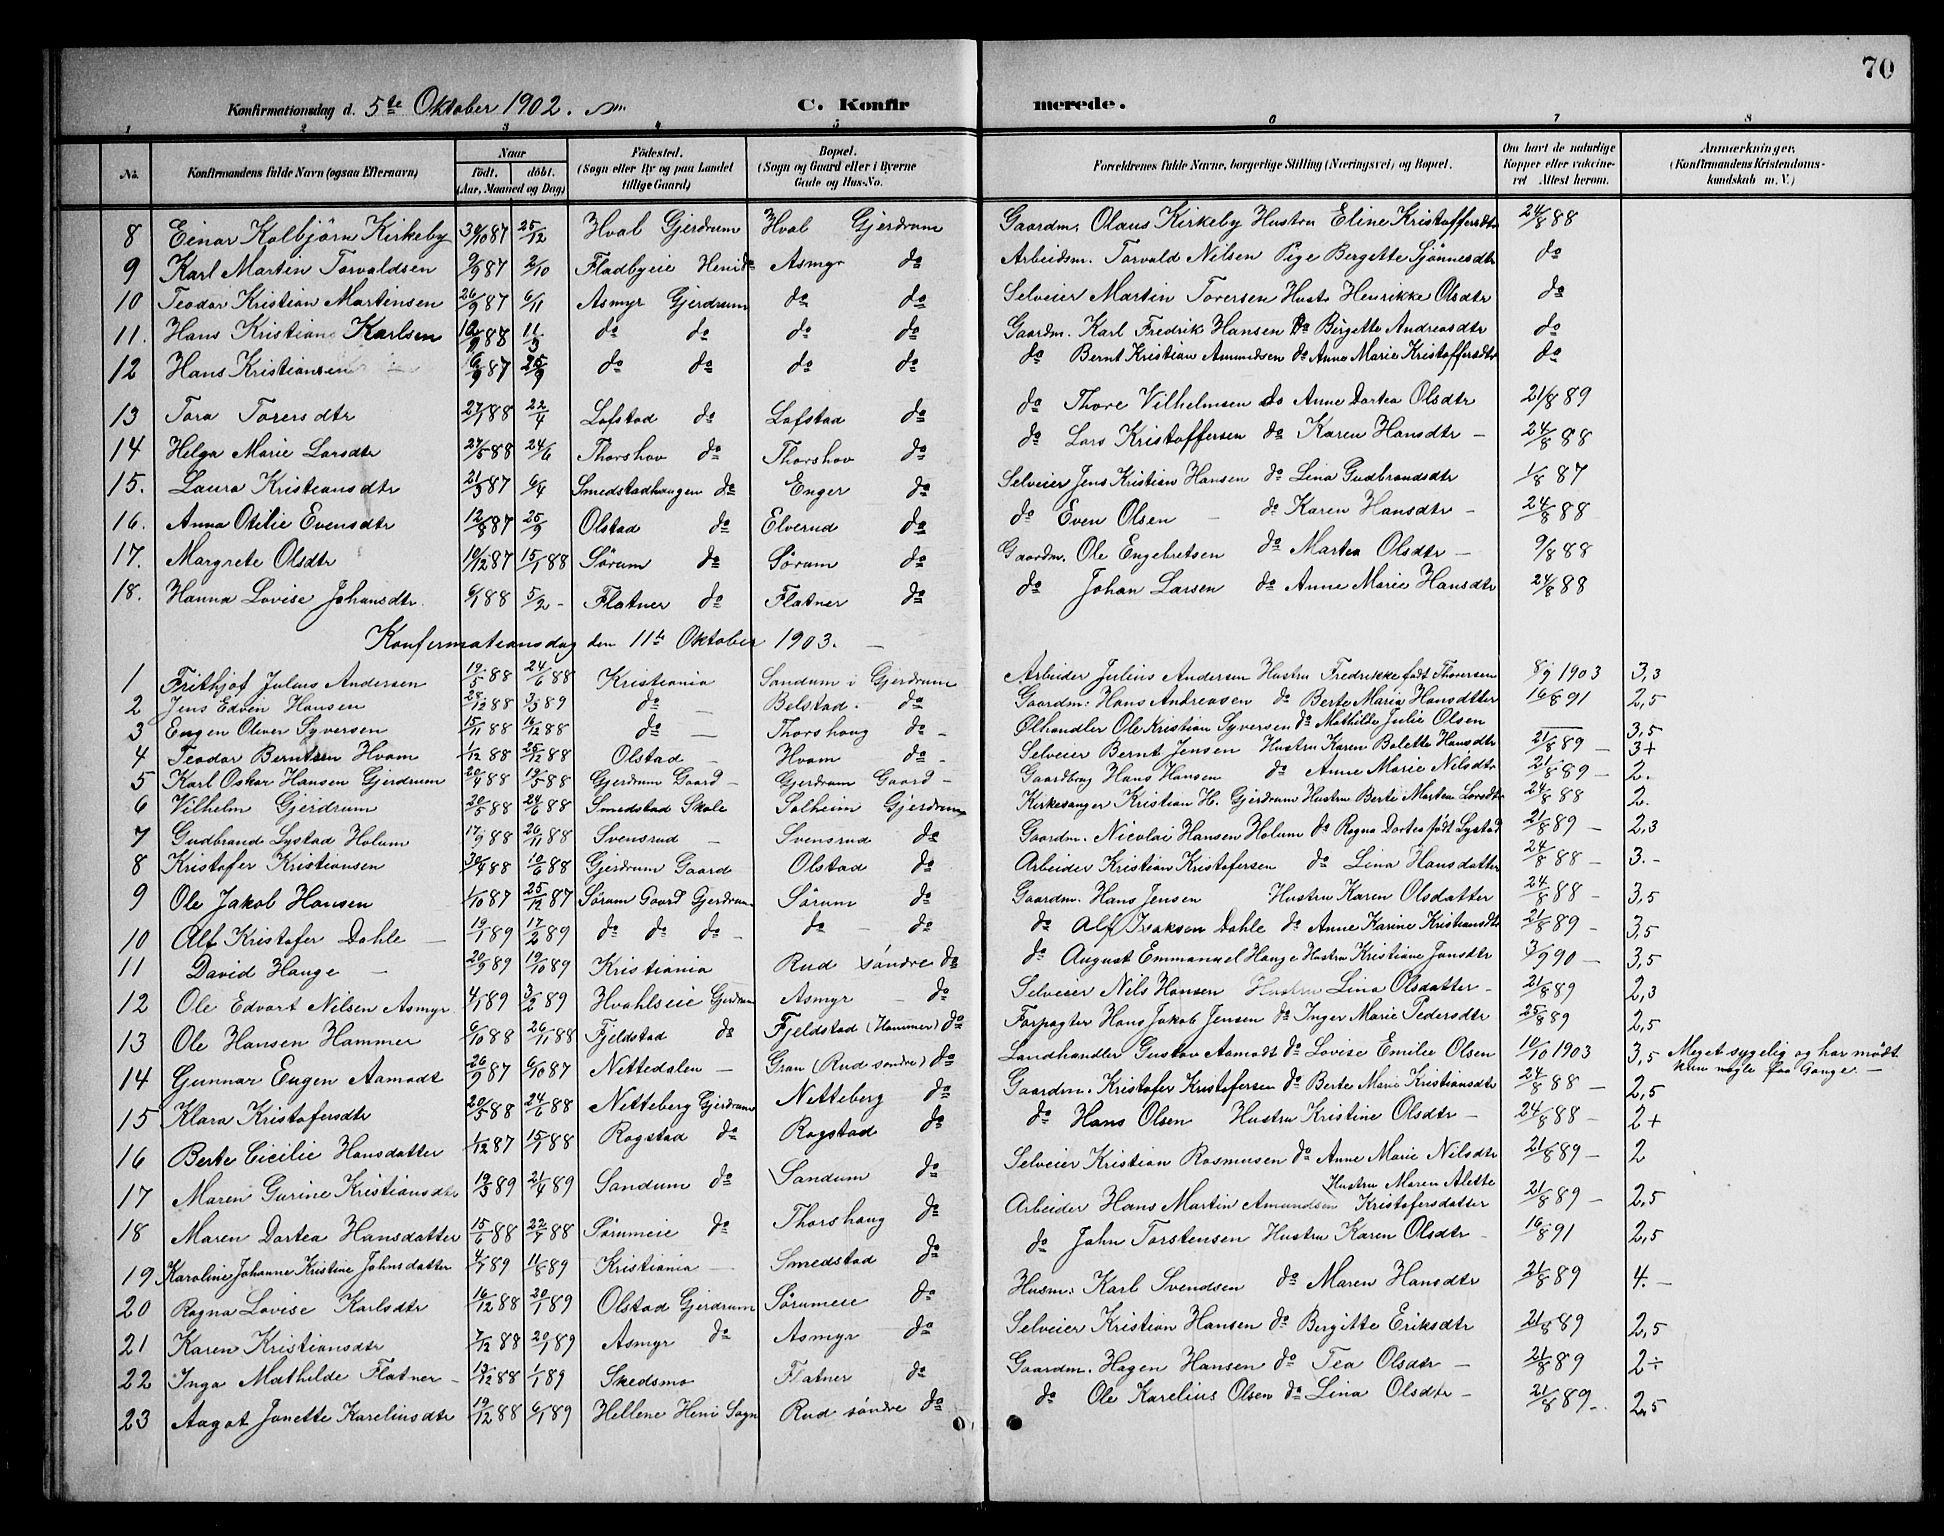 70
Konfirmationsdag d. 5te Oktober 1902. C. Konfirmerede.
1 2 3 4 5 6 7 8
No. Konfirmandens fulde Navn (ogsaa Efternavn) Naar født. døbt. (Aar, Maaned og Dag) Fødested. (Sogn eller By og paa Landet tillige Gaard) Bopæl. (Sogn og Gaard eller i Byerne Gade og Hus-No. Forældrenes fulde Navne, borgerlige Stilling (Næringsvei) og Bopæl. Om havt de naturlige Kopper eller vakcineret Attest herom. Anmærkninger. (Konfirmandens Kristendomskundskab m. V.)
8 Einar Kolbjørn Kirkeby 87 25/12 Hval Gjerdrum Hval Gjerdrum Gaardm. Olaus Kirkeby Hustru Eline Kristoffersdtr 24/8 88
9 Karl Martin Torvaldsen 9/9 87 2/10 Fladbyeie Heni do Asmyr do Arbeidsm. Torvald Nilsen Pige Bergette Sjønnesdtr do
10 Teodor Kristian Martinsen 26/9 87 6/11 Asmyr Gjerdrum do do Selveier Martin Toresen Hustr Henrikke Olsdtr do
11. Hans Kristian Karlsen 88 11/3 do do do do Gaardm. Karl Fredrik Hansen do Bergette Andreasdtr do
12 Hans Kristiansen 6/9 87 25/9 do do do do do Bernt Kristian Amundsen do Anne Marie Kristoffersdtr do
13 Tora Toresdtr 27/1 88 22/4 Lofstad do Lofstad do do Thore Vilhelmsen do Anne Dortea Olsdtr 21/8 89
14 Helga Marie Larsdtr 27/5 88 24/6 Thorshov do Thorshov do do Lars Kristoffersen do Karen Hansdtr - 24/8 88
15. Laura Kristiansdtr 21/3 87 6/4 Smedstadhaugen do Enger do Selveier Jens Kristian Hansen do Lina Gudbrandsdtr 1/8 87
16. Anna Otilie Evensdtr 12/8 87 25/9 Olstad do Elverud do do Even Olsen - do Karen Hansdtr - 24/8 88
17. Margrete Olsdtr 10/12 87 15/1 88 Sørum do Sørum do Gaardm. Ole Engebretsen do Martea Olsdtr - 9/8 88
18. Hanna Lovise Johansdtr. 6/1 88 5/2 - Flatner do Flatner do do Johan Larsen do Anne Marie Hansdtr 24/8 88
Konfermationsdag den 11te Oktober 1903. -
1 Frithjof Julius Andersen 19/5 88 24/6 88 Kristiania Sandum i Gjerdrum Arbeider Julius Andersen Hustru Fredrikke født Thoresen 8/9 1903 3,3
2 Jens Edven Hansen 28/12 88 3/3 89 do - Belstad. do Gaardm: Hans Andreasen do Berte Maria Hansdtter 16/8 91 2,5
3 Eugen Oliver Syversen 15/11 88 16/12 88 do - Thorshaug do - Ølhandler Ole Kristian Syversen do Mathilde Julie Olsen — 3,5
4 Teodor Berntsen Hvam 1/12 88 25/12 88 Olstad - Hvam do - Selveier Bernt Jensen Hustru Karen Bolette Hansdtr 21/8 89 - 3+
5 Karl Oskar Hansen Gjerdrum 20/4 88 19/5 88 Gjerdrum Gaard - Gjerdrum Gaard - Gaardbrug Hans Hansen do Anne Marie Nilsdtr 21/8 89 - 2.
6 Vilhelm Gjerdrum 20/5 88 24/6 88 Smedstad Skole Solheim Gjerdrum Kirkesanger Kristian H. Gjerdrum Hustru Berte Martea Larsdtr 24/8 88 2.
7 Gudbrand Lystad Holum 17/9 88 26/11 88 Svensrud - Svensrud do Gaardm. Nicolai Hansen Holum do Ragna Dortea født Lystad 21/8 89 - 2,3
8 Kristofer Kristiansen 30/4 88 10/6 88 Gjerdrum Gaard Olstad do Arbeider Kristian Kristofersen do Lina Hansdatter 24/8 88 - 3.-
9 Ole Jakob Hansen 1/10 87 25/12 87 Sørum Gaard Gjerdrum Sørum do Gaardm. Hans Jensen Hustru Karen Olsdatter 24/8 88 - 3,5
10 Alf Kristofer Dahle - 19/1 89 17/2 89 do do do - do - do do Alf Iraksen Dahle do Anne Karine Kristiansdtr 21/8 89 - 3,5
11 David Hauge - 20/9 89 19/10 89 Kristiania Rud søndre do do August Emmanuel Hauge Hustru Kristiane Jansdtr 3/9 90 - 3,5
12 Ole Edvart Nilsen Asmyr 4/1 89 3/2 89 Hvahlseie Gjerdrum Asmyr - do Selveier Nils Hansen Hustru Lina Olsdatter - 21/8 89 2,3
13 Ole Hansen Hammer 6/10 88 26/11 88 Fjeldstad do Fjeldstad (Hammer) do Forpagter Hans Jakob Jensen do Inger Marie Pedersdtr 25/8 89 2,5
14 Gunnar Eugen Aamodt 26/9 87 6/10 87 Nettedalen - Gran (Rud søndre) do Landhandler Gustav Aamodt do Lovise Emilie Olsen 10/10 1903 3,5 Meget sygelig og har mødt kun nogle faa Gange. -
15 Klara Kristofersdtr 20/5 88 24/6 88 Netteberg Gjerdrum Netteberg do Gaardm. Kristofer Kristofersen do Berte Marie Kristiansdtr 24/8 88 - 2,5
16 Berte Cicilie Hansdatter 1/12 87 15/1 88 Rogstad do Rogstad do do Hans Olsen Hustru Kristine Olsdtr - 24/8 88 - 2+
17 Maren Gurine Kristiansdtr 19/3 89 21/4 89 Sandum do Sandum do Selveier Kristian Rasmusen do Anne Marie Nilsdtr 21/8 89 - 2
18 Maren Dortea Hansdatter 15/6 88 22/7 88 Sørumeie do Thorshaug do Arbeider Hans Martin Amundsen Hustru Maren Alette Kristofersdatter 21/8 89 - 2,5
19 Karoline Johanne Kristine Johnsdatter 4/7 89 11/8 89 Kristiania - Smedstad do do John Torstensen Hustru Karen Olsdtr - 16/8 91 2,5
20 Ragna Lovise Karlsdtr 16/12 88 20/1 89 Olstad Gjerdrum Sørumeie do Husm: Karl Svendsen do Maren Hansdtr 21/8 89 4.-
21 Karen Kristiansdtr 7/12 88 20/1 89 Asmyr do Asmyr do Selveier Kristian Hansen do Bergitte Eriksdtr 21/8 89 2,5
22 Inga Mathilde Flatner - /12 88 1/1 89 Skedsmo Flatner do Gaardm. Hagen Hansen do Tea Olsdtr - 21/8 89 2÷
23 Aagot Janette Kareliusdtr 19/12 88 6/1 89 Hellene Heni Sogn Rud søndre do do Ole Karelius Olsen do Lina Olsdtr - 21/8 89 - 2,5